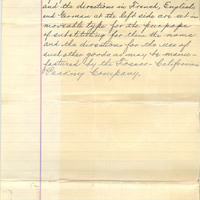 and the directions in French, English
and German at the left side are set in
moveable type for the purpose
of substituting for them the name
and the directions for the use of
such other goods as may be manu-
factured by the Fresno-California
Packing Company.